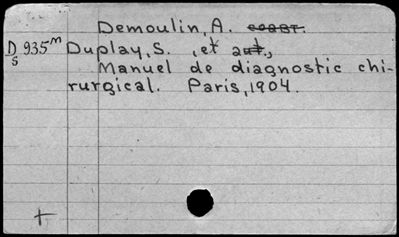 Demoulin, A. coast.
D 935m Duplay, S. , et aut.,
s Manuel de diagnostic chi-
rurgical. Paris, 1904.
+